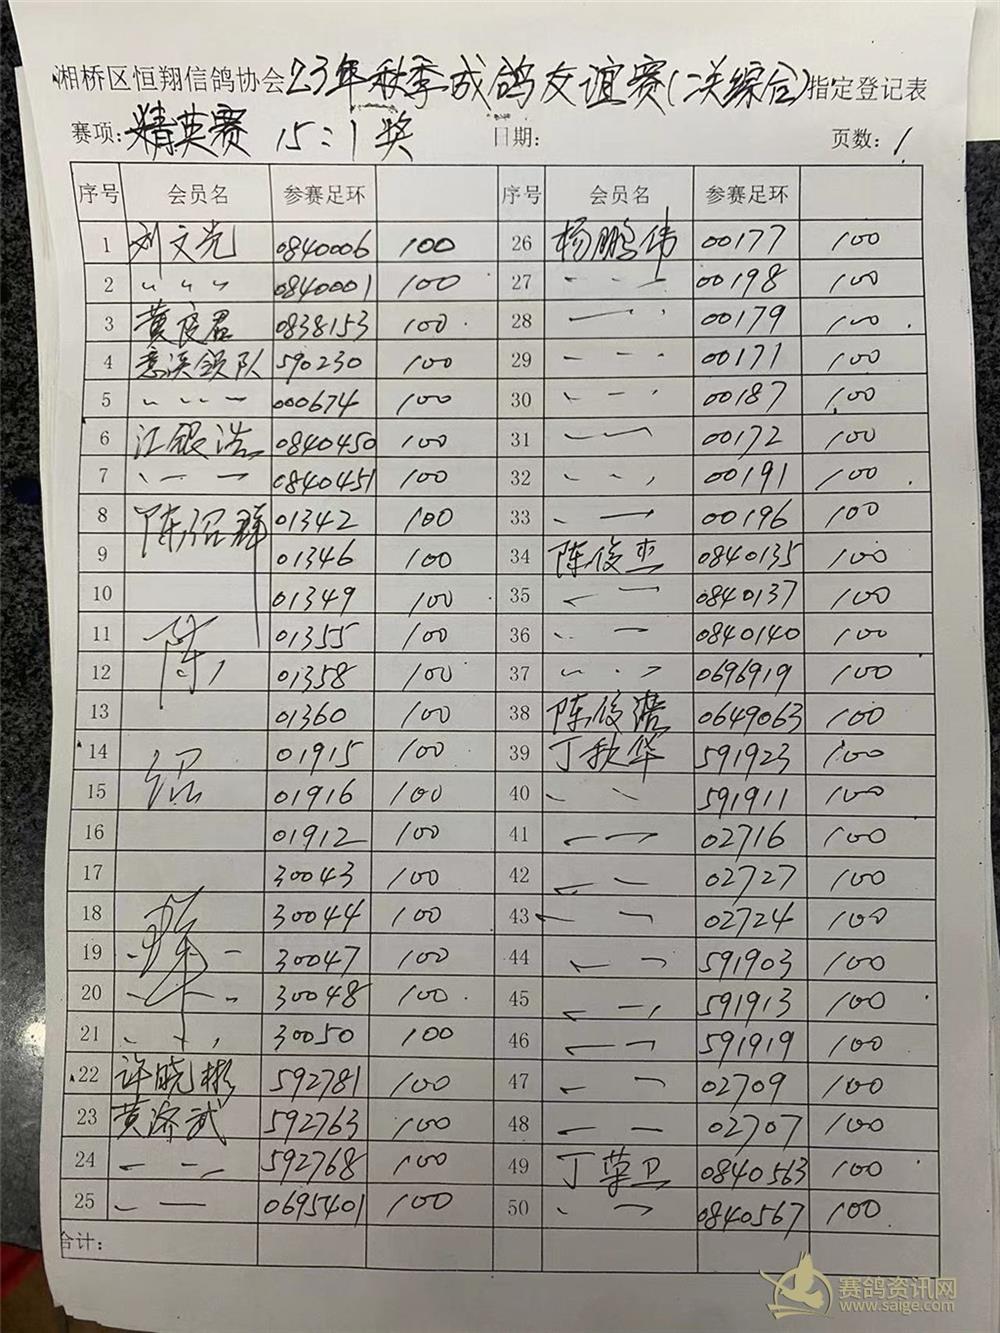 湘桥区恒翔信鸽协会23年秋季成鸽友谊赛(二关综合)指定登记表
赛项:精英赛 15:1奖 日期: 页数:1
序号 会员名 参赛足环 序号 会员名 参赛足环
1 刘文光 0840006 100 26 杨鹏伟 00177 100
2 〃 〃 〃 0840001 100 27 - - - 00198 100
3 黄良君 0838153 100 28 - - 00179 100
4 意溪领队 590230 100 29 - - - 00171 100
5 - - - 000674 100 30 - - - 00187 100
6 江银浩 0840450 100 31 - - 00172 100
7 - - - 0840451 100 32 - - - 00191 100
8 陈绍群 01342 100 33 - - 00196 100
9 01346 100 34 陈俊杰 0840135 100
10 01349 100 35 - - 0840137 100
11 陈 01355 100 36 - - 0840140 100
12 01358 100 37 - - - 0696919 100
13 01360 100 38 陈俊浩 0649063 100
14 绍 01915 100 39 丁秋华 591923 100
15 01916 100 40 - - 591911 100
16 01912 100 41 - - 02716 100
17 30043 100 42 - - 02727 100
18 群 30044 100 43 - - 02724 100
19 - - 30047 100 44 - - 591903 100
20 - - 30048 100 45 - - 591913 100
21 - - 30050 100 46 - - 591919 100
22 许晓彬 592781 100 47 - - 02709 100
23 黄济武 592763 100 48 - - 02707 100
24 - - 592768 100 49 丁葦卫 0840563 100
25 - - 0695401 100 50 - - 0840567 100
合计:
赛鸽资讯网
www.saige.com